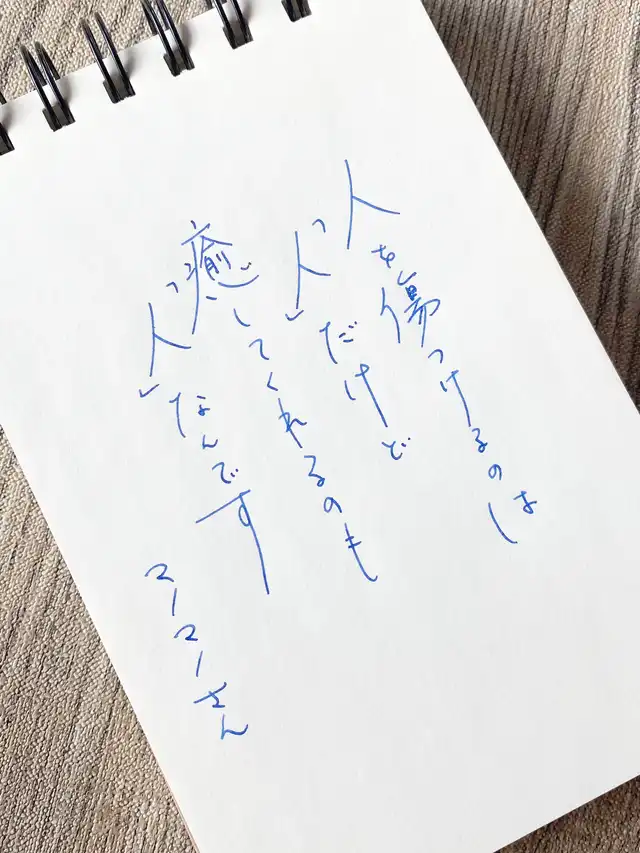 人を傷つけるのは
「人」だけど
癒してくれるのも
「人」なんです
マーマーさん